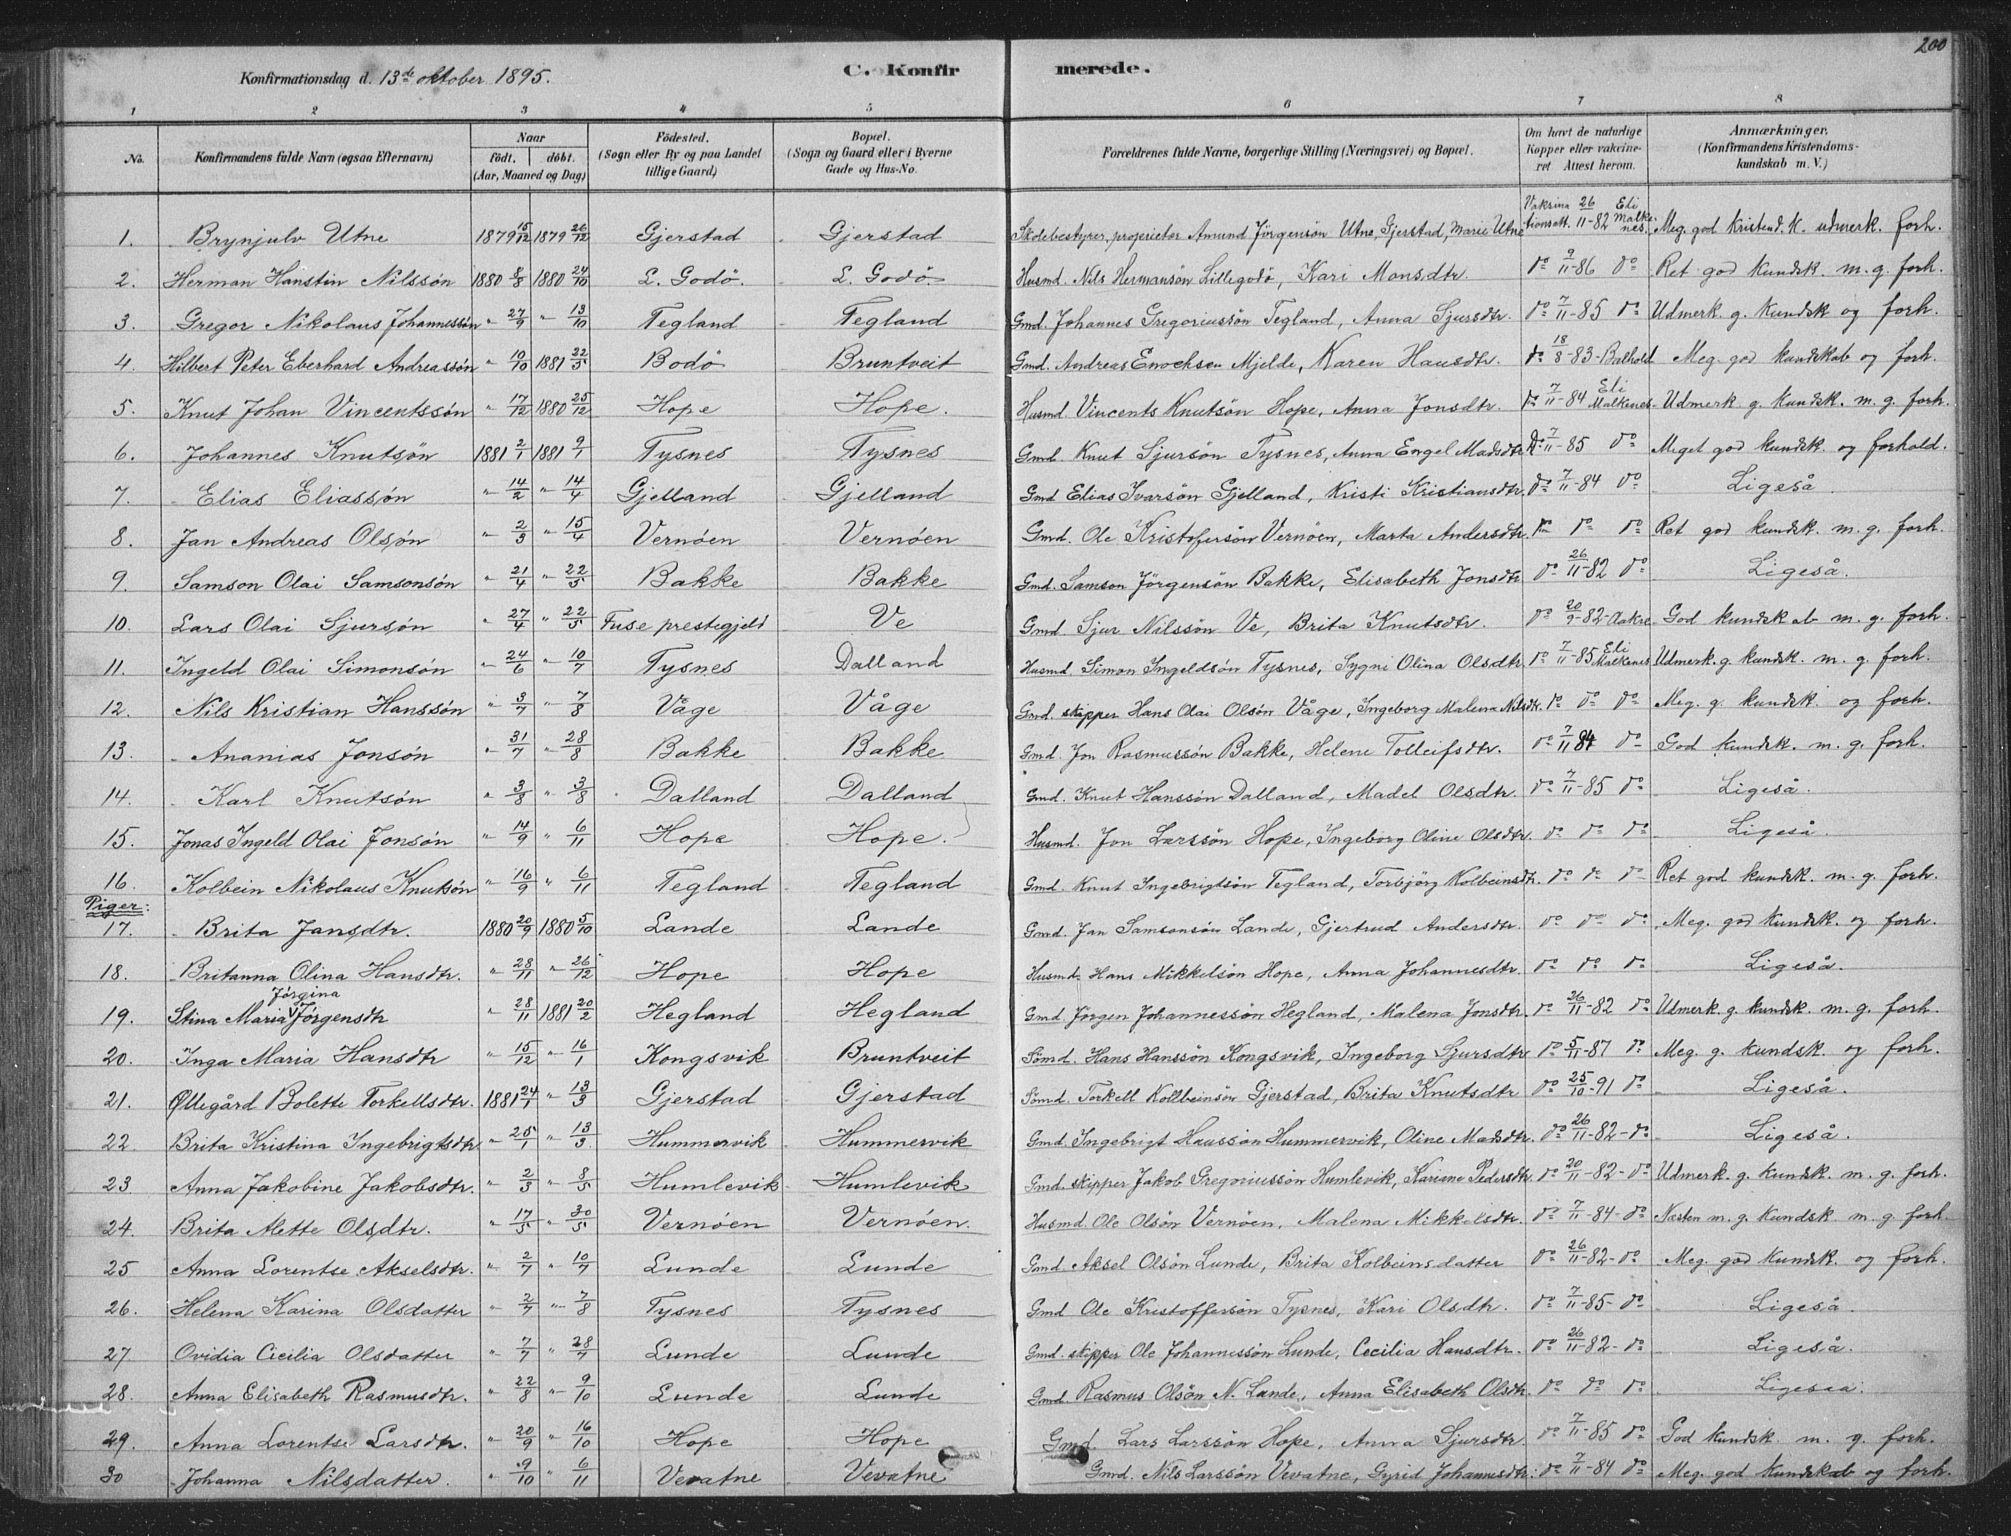 200
Konfirmationsdag d. 13de oktober 1895. C. Konfirmerede.
1 2 3 4 5 6 7 8
No. Konfirmandens fulde Navn (ogsaa Efternavn) Naar født. døbt. (Aar, Maaned og Dag) Fødested. (Sogn eller By og paa Landet tillige Gaard) Bopæl. (Sogn og Gaard eller i Byerne Gade og Hus-No. Forældrenes fulde Navne, borgerlige Stilling (Næringsvei) og Bopæl. Om havt de naturlige Kopper eller vakcineret Attest herom. Anmærkninger. (Konfirmandens Kristendomskundskab m. V.)
1. Brynjulv Utne 1879 15/12 1879 26/12 Gjerstad Gjerstad Skolebestyrer, proprietær Amund Jörgensön Utne, Gjerstad, Marie Utne Vaksinationsatt. 26/11-82 Eli Malkenes. Meg. god Kristend. K. udmerk. forh.
2. Herman Hanstin Nilssön 1880 8/8 1880 24/10 L. Godö. L. Godö. Husmd. Nils Hermansön Lillegodö, Kari Monsdtr. do 7/11-86 do Ret god kundsk. m. g. forh.
3. Gregor Nikolaus Johannessön " 27/9 " 13/10 Tegland Tegland Gmd. Johannes Gregoriussön Tegland, Anna Sjursdtr. do 7/11-85 do Udmerk. g. kundsk og forh.
4. Hilbert Peter Eberhard Andreassön " 10/10 1881 22/5 Bodö Bruntveit Gmd. Andreas Enochsen Mjelde, Karen Hansdtr. do 18/8-83 Balhold Meg. god kundskab og forh.
5. Knut Johan Vincentssön " 17/12 1880 25/12 Hope Hope. Husmd. Vincents Knutsön Hope, Anna Jonsdtr. do 7/11-84 Eli Malkenes Udmerk g. kundsk. m. g. forh.
6. Johannes Knutsön 1881 2/1 1881 9/1 Tysnes Tysnes Gmd. Knut Sjursön Tysnes, Anna Engel Madsdtr. do 7/11-85 do Meget god kundsk. og forhold.
7. Elias Eliassön " 14/2 " 14/4 Gjelland Gjelland Gmd Elias Ivarsön Gjelland, Kristi Kristiansdtr. do 7/11-84 do Ligeså
8. Jan Andreas Olsön " 2/3 " 15/4 Vernöen Vernöen Gmd. Ole Kristofersön Vernöen, Marta Andersdtr. do do do Ret god kundsk. m. g. forh.
9. Samson Olai Samsonsön " 21/4 " 22/5 Bakke Bakke Gmd. Samson Jörgensön Bakke, Elisabeth Jonsdtr do 26/11-82 do Ligeså.
10. Lars Olai Sjursön " 27/4 " 22/5 Fuse prestegjeld Ve Gmd Sjur Nilssön Ve, Brita Knutsdtr. do 20/9-82 Aakre God kundskab m. g. forh.
11. Ingeld Olai Simonsön " 24/6 " 10/7 Tysnes Dalland Husmd. Simon Ingeldsön Tysnes, Sygni Olina Olsdtr. do 7/11-85 Eli Malkenes Udmerk. g. kundsk. m. g. forh.
12. Nils Kristian Hanssön " 3/7 " 7/8 Våge Våge Gmd. skipper Hans Olai Olsön Våge, Ingeborg Malena Nilsdtr. do do do Meg. g. kundsk. og forh.
13. Ananias Jonsön " 31/7 " 28/8 Bakke Bakke Gmd. Jon Rasmussön Bakke, Helene Tolleifsdtr. do 7/11 84 do God kundsk. m. g. forh.
14. Karl Knutsön " 3/8 " 3/8 Dalland Dalland Gmd. Knut Hanssön Dalland, Madel Olsdtr. do 7/11-85 do Ligeså.
15. Jonas Ingeld Olai Jonsön " 14/9 " 6/11 Hope Hope. Husmd. Jon Larssön Hope, Ingeborg Oline Olsdtr. do do do Ligeså.
16. Kolbein Nikolaus Knutsön " 16/9 " 6/11 Tegland Tegland Gmd. Knut Ingebrigtsön Tegland, Torbjörg Kolbeinsdtr. do do do Ret god kundsk. m. g. forh.
Piger:
17. Brita Jansdtr. 1880 20/9 1880 5/10 Lande Lande Gmd. Jan Samsonsön Lande, Gjertrud Andersdtr. do do do Meg. god kundsk. og forh.
18. Britanna Olina Hansdtr. " 28/11 " 26/12 Hope Hope Husmd. Hans Mikkelsön Hope, Anna Johannesdtr. do do do Ligeså.
19. Stina Maria Jörgina Jörgensdtr " 28/11 1881 20/2 Hegland Hegland Gmd. Jörgen Johannessön Hegland, Malena Jonsdtr. do 26/11-82 do Udmerk. g. kundsk. m. g. forh.
20. Inga Maria Hansdtr " 15/12 " 16/1 Kongsvik Bruntveit Sömd. Hans Hanssön Kongsvik, Ingeborg Sjursdtr. do 5/11-87 do Meg. g. kundsk. og forh.
21. Øllegård Bolette Torkellsdtr. 1881 24/1 " 13/3 Gjerstad Gjerstad Sömd. Torkell Kollbeinsön Gjerstad, Brita Knutsdtr do 25/10-91 do Ligeså.
22. Brita Kristina Ingebrigtsdtr. " 25/1 " 13/3 Hummervik Hummervik Gmd. Ingebrigt Hanssön Hummervik, Oline Madsdtr. do 26/11-82 do Ligeså.
23. Anna Jakobine Jakobsdtr. " 2/3 " 8/5 Humlevik Humlevik Gmd. skipper Jakob Gregoriussön Humlevik, Kariane Pedersdtr. do 20/11-82 do Udmerk. g. kundsk. m. g. forh.
24. Brita Mette Olsdtr. " 17/5 " 30/5 Vernöen Vernöen. Husmd. Ole Olsön Vernöen, Malena Mikkelsdtr. do 7/11-84 do Næsten m. g. kundsk. m. g. forh.
25 Anna Lorentse Akselsdtr. " 2/7 " 10/7 Lunde Lunde Gmd. Aksel Olsön Lunde, Brita Kolbeinsdatter do 26/11-82 do Meg. god kundsk. og forh.
26. Helena Karina Olsdatter " 2/7 " 7/8 Tysnes Tysnes Gmd Ole Kristoffersön Tysnes, Kari Olsdtr. do 7/11-85 do Ligeså.
27 Ovidia Cicilia Olsdatter " 7/7 " 28/7 Lunde Lunde Gmd. skipper Ole Johannessön Lunde, Cecilia Hansdtr. do 26/11-82 do Ligeså.
28. Anna Elisabeth Rasmusdtr. " 22/8 " 9/10 Lunde Lunde Gmd. Rasmus Olsön N. Lunde, Anna Elisabeth Olsdtr. do do do Ligesaa
29. Anna Lorentse Larsdtr. " 20/9 " 16/10 Hope Hope Gmd. Lars Larssön Hope, Anna Sjursdtr. do 7/11-85 do God kundsk. m. g. forh.
30 Johanna Nilsdatter. " 9/10 " 6/11 Vevatne Vevatne Gmd. Nils Larssön Vevatne, Gyrid Johannesdtr. do 7/11-84 do Meg. god kundskab og forh.